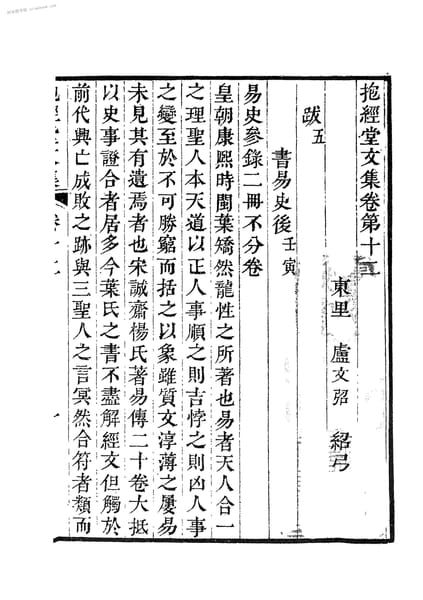 抱經堂文集卷第十二
東里 盧文弨 紹弓
跋五
書易史後壬寅
易史參錄二冊不分卷
皇朝康熙時閩葉矯然龍性之所著也易者天人合一
之理聖人本天道以正人事順之則吉悖之則凶人事
之變至於不可勝窮而括之以象雖質文淳薄之屢易
未見其有遺焉者也宋誠齋楊氏著易傳二十卷大抵
以史事證合者居多今葉氏之書不盡解經文但觸於
前代興亡成敗之跡與三聖人之言冥然合符者類而